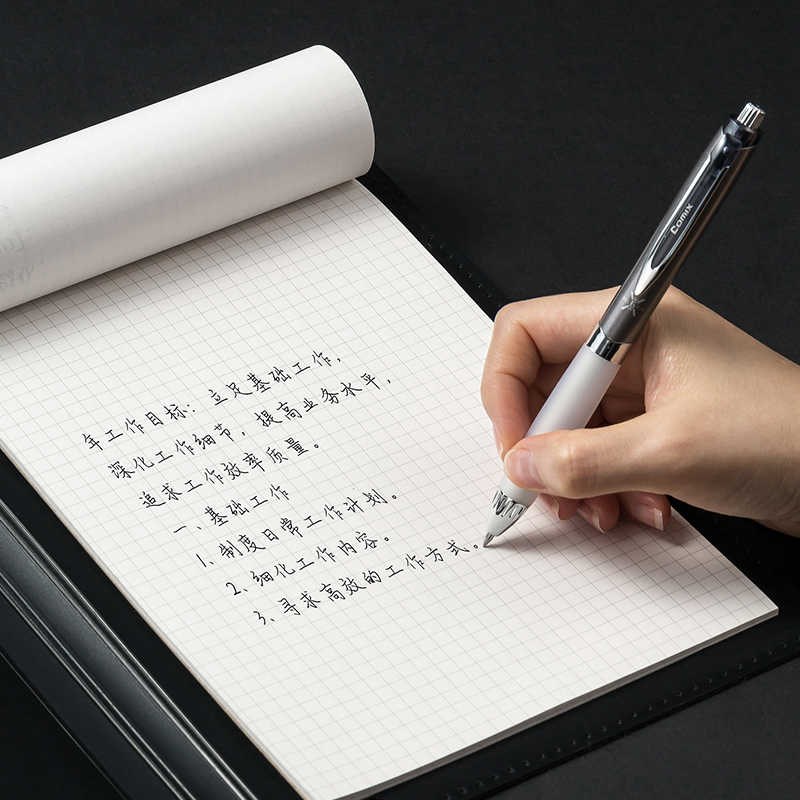 年工作目标：立足基础工作，
深化工作细节，提高业务水平，
追求工作效率质量。
一、基础工作
1、制度日常工作计划。
2、细化工作内容。
3、寻求高效的工作方式。
Comix